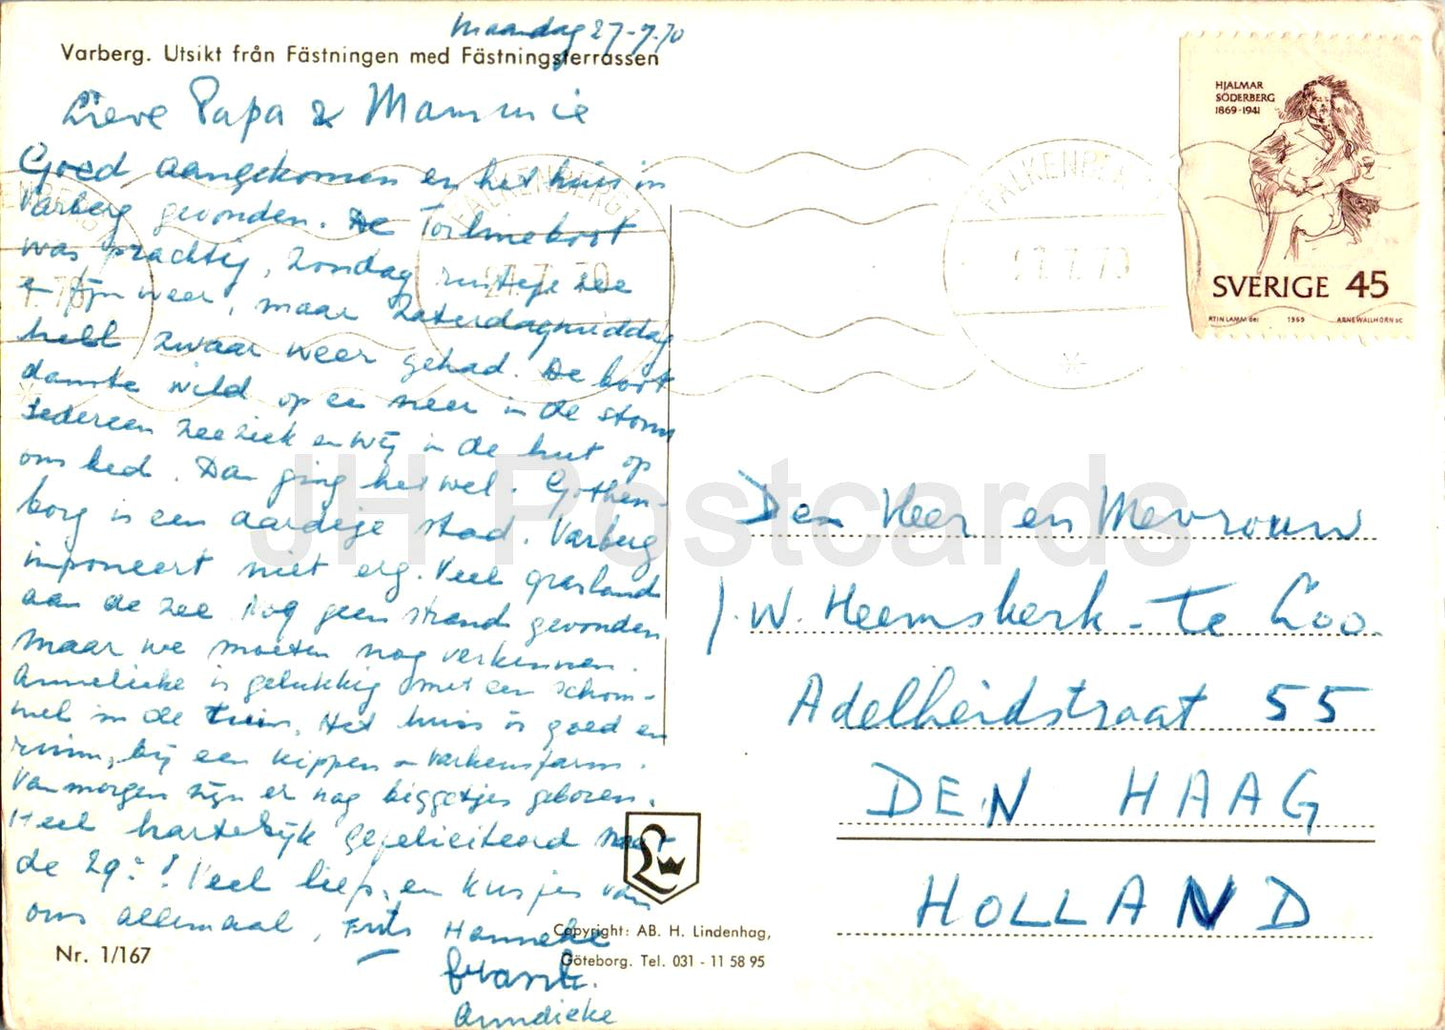 Maandag 27-7-70
Varberg. Utsikt från Fästningen med Fästningsterrassen
Lieve Papa & Mammie
Goed aangekomen en het huis in
Varberg gevonden. De Tor lineboot
was prachtig, Zondag rustige zee
en fijn weer, maar Zaterdagmiddag
heel zwaar weer gehad. De boot
danste wild op en neer in de storm
Iedereen zeeziek en wij in de hut op
ons bed. Dan ging het wel. Gothen-
borg is een aardige stad. Varberg
imponeert niet erg. Veel grasland
aan de zee. Nog geen strand gevonden
maar we moeten nog verkennen.
Annelieke is gelukkig met een schom-
mel in de tuin. Het huis is goed en
ruim, bij een kippen en varkensfarm.
Vanmorgen zijn er nog biggetjes geboren.
Heel hartelijk gefeliciteerd met
de 29e! Veel liefs en kusjes van
ons allemaal, Frits Hanneke
Frank.
Annelieke
Nr. 1/167
Copyright: AB. H. Lindenhag,
Göteborg. Tel. 031 - 11 58 95
HJALMAR
SÖDERBERG
1869-1941
SVERIGE 45
STIN LAMM del 1969 ARNE WALLHORN SC
FALKENBERG 1
27.7.70
FALKENBERG
27.7.70
JH Postcards
Den Heer en Mevrouw
J. W. Heemskerk - te Loo.
Adelheidstraat 55
DEN HAAG
HOLLAND